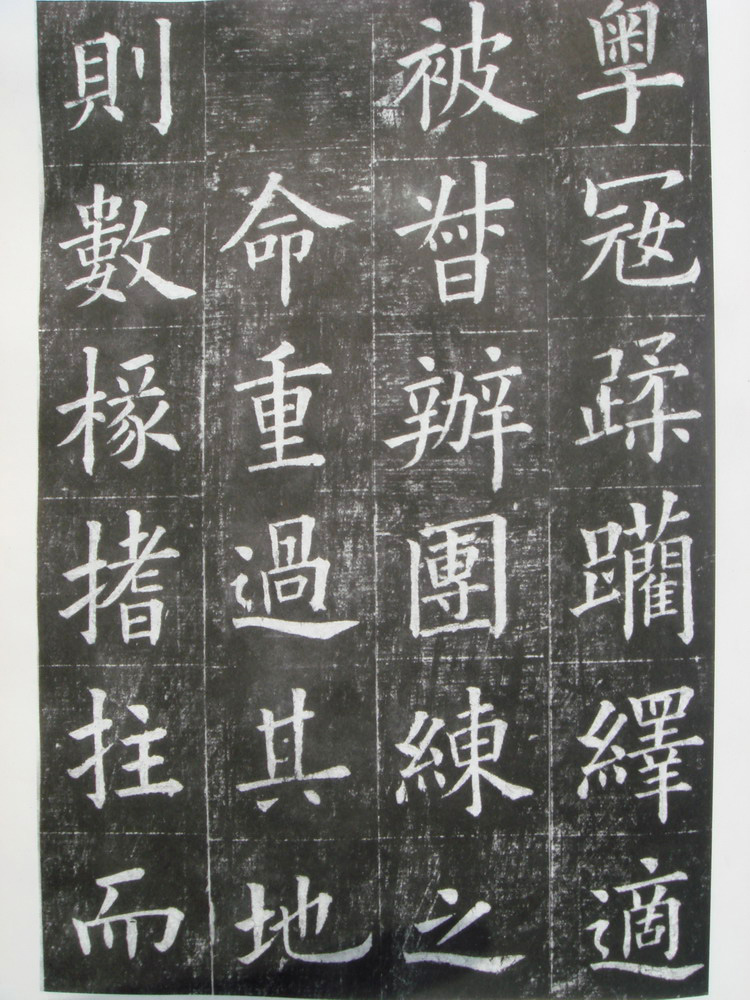 粵寇蹂躪繹適
被督辦團練之
命重過其地
則數椽搘拄而